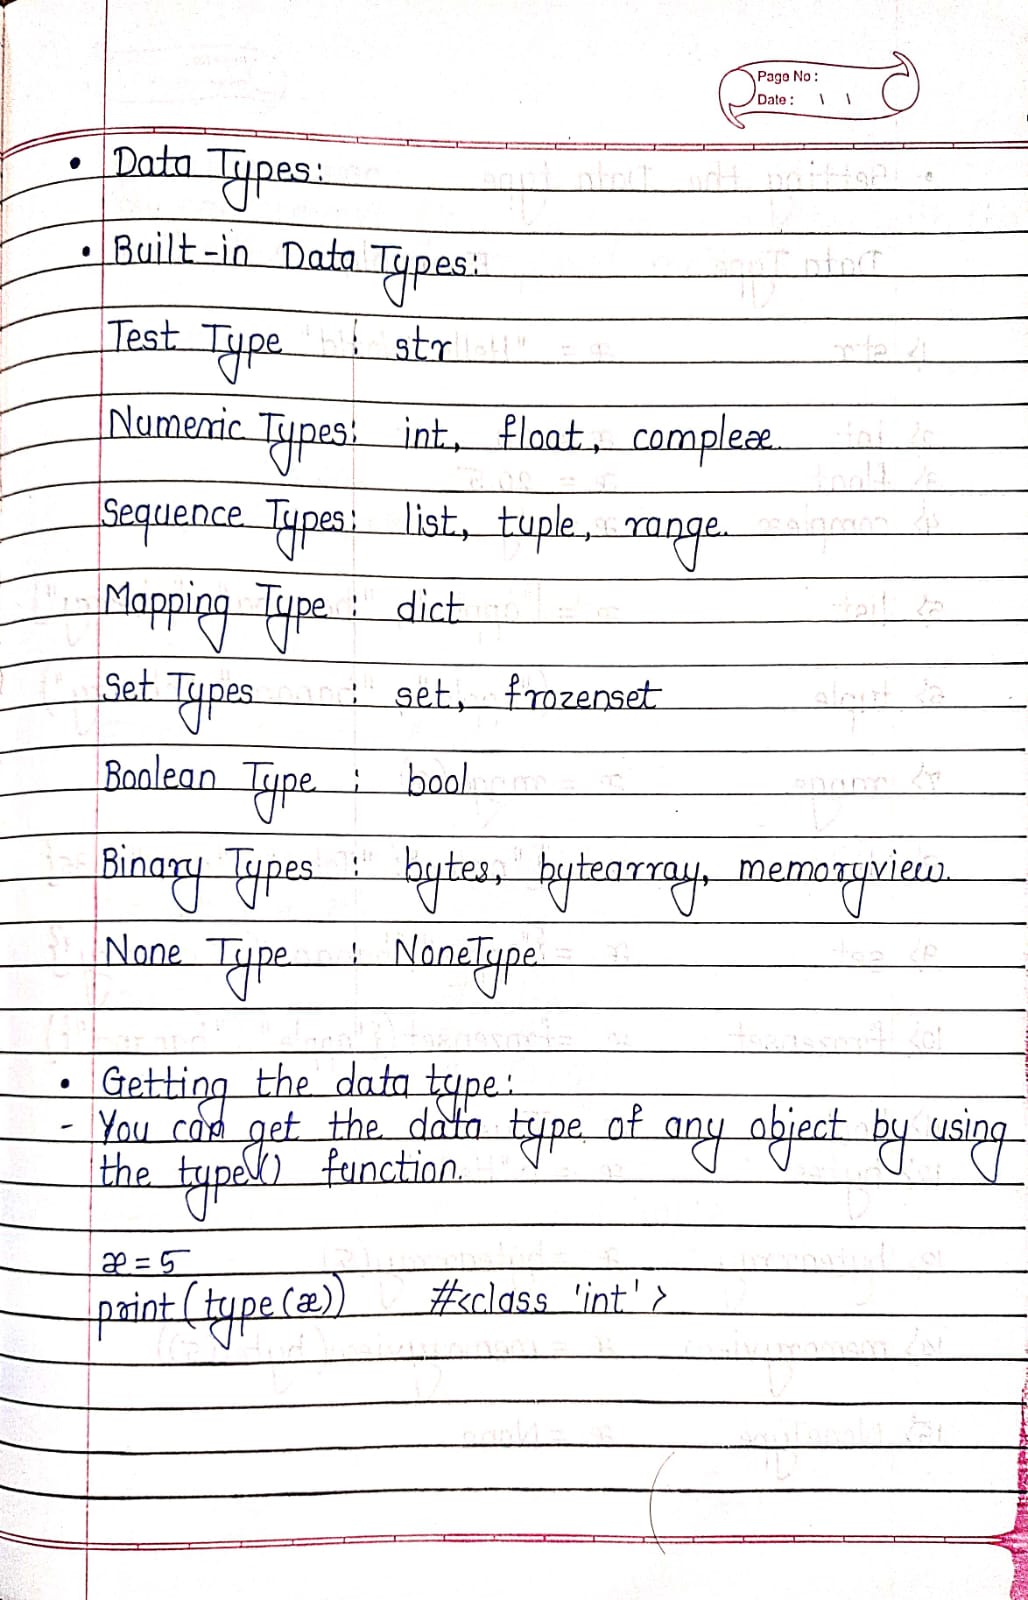 Page No :
Date : \ \
• Data Types:
• Built-in Data Types:
Test Type : str
Numeric Types: int, float, complex.
Sequence Types: list, tuple, range.
Mapping Type : dict
Set Types : set, frozenset
Boolean Type : bool
Binary Types : bytes, bytearray, memoryview.
None Type : NoneType
• Getting the data type:
- You can get the data type of any object by using
the type() function.
x = 5
print(type(x)) #<class 'int'>